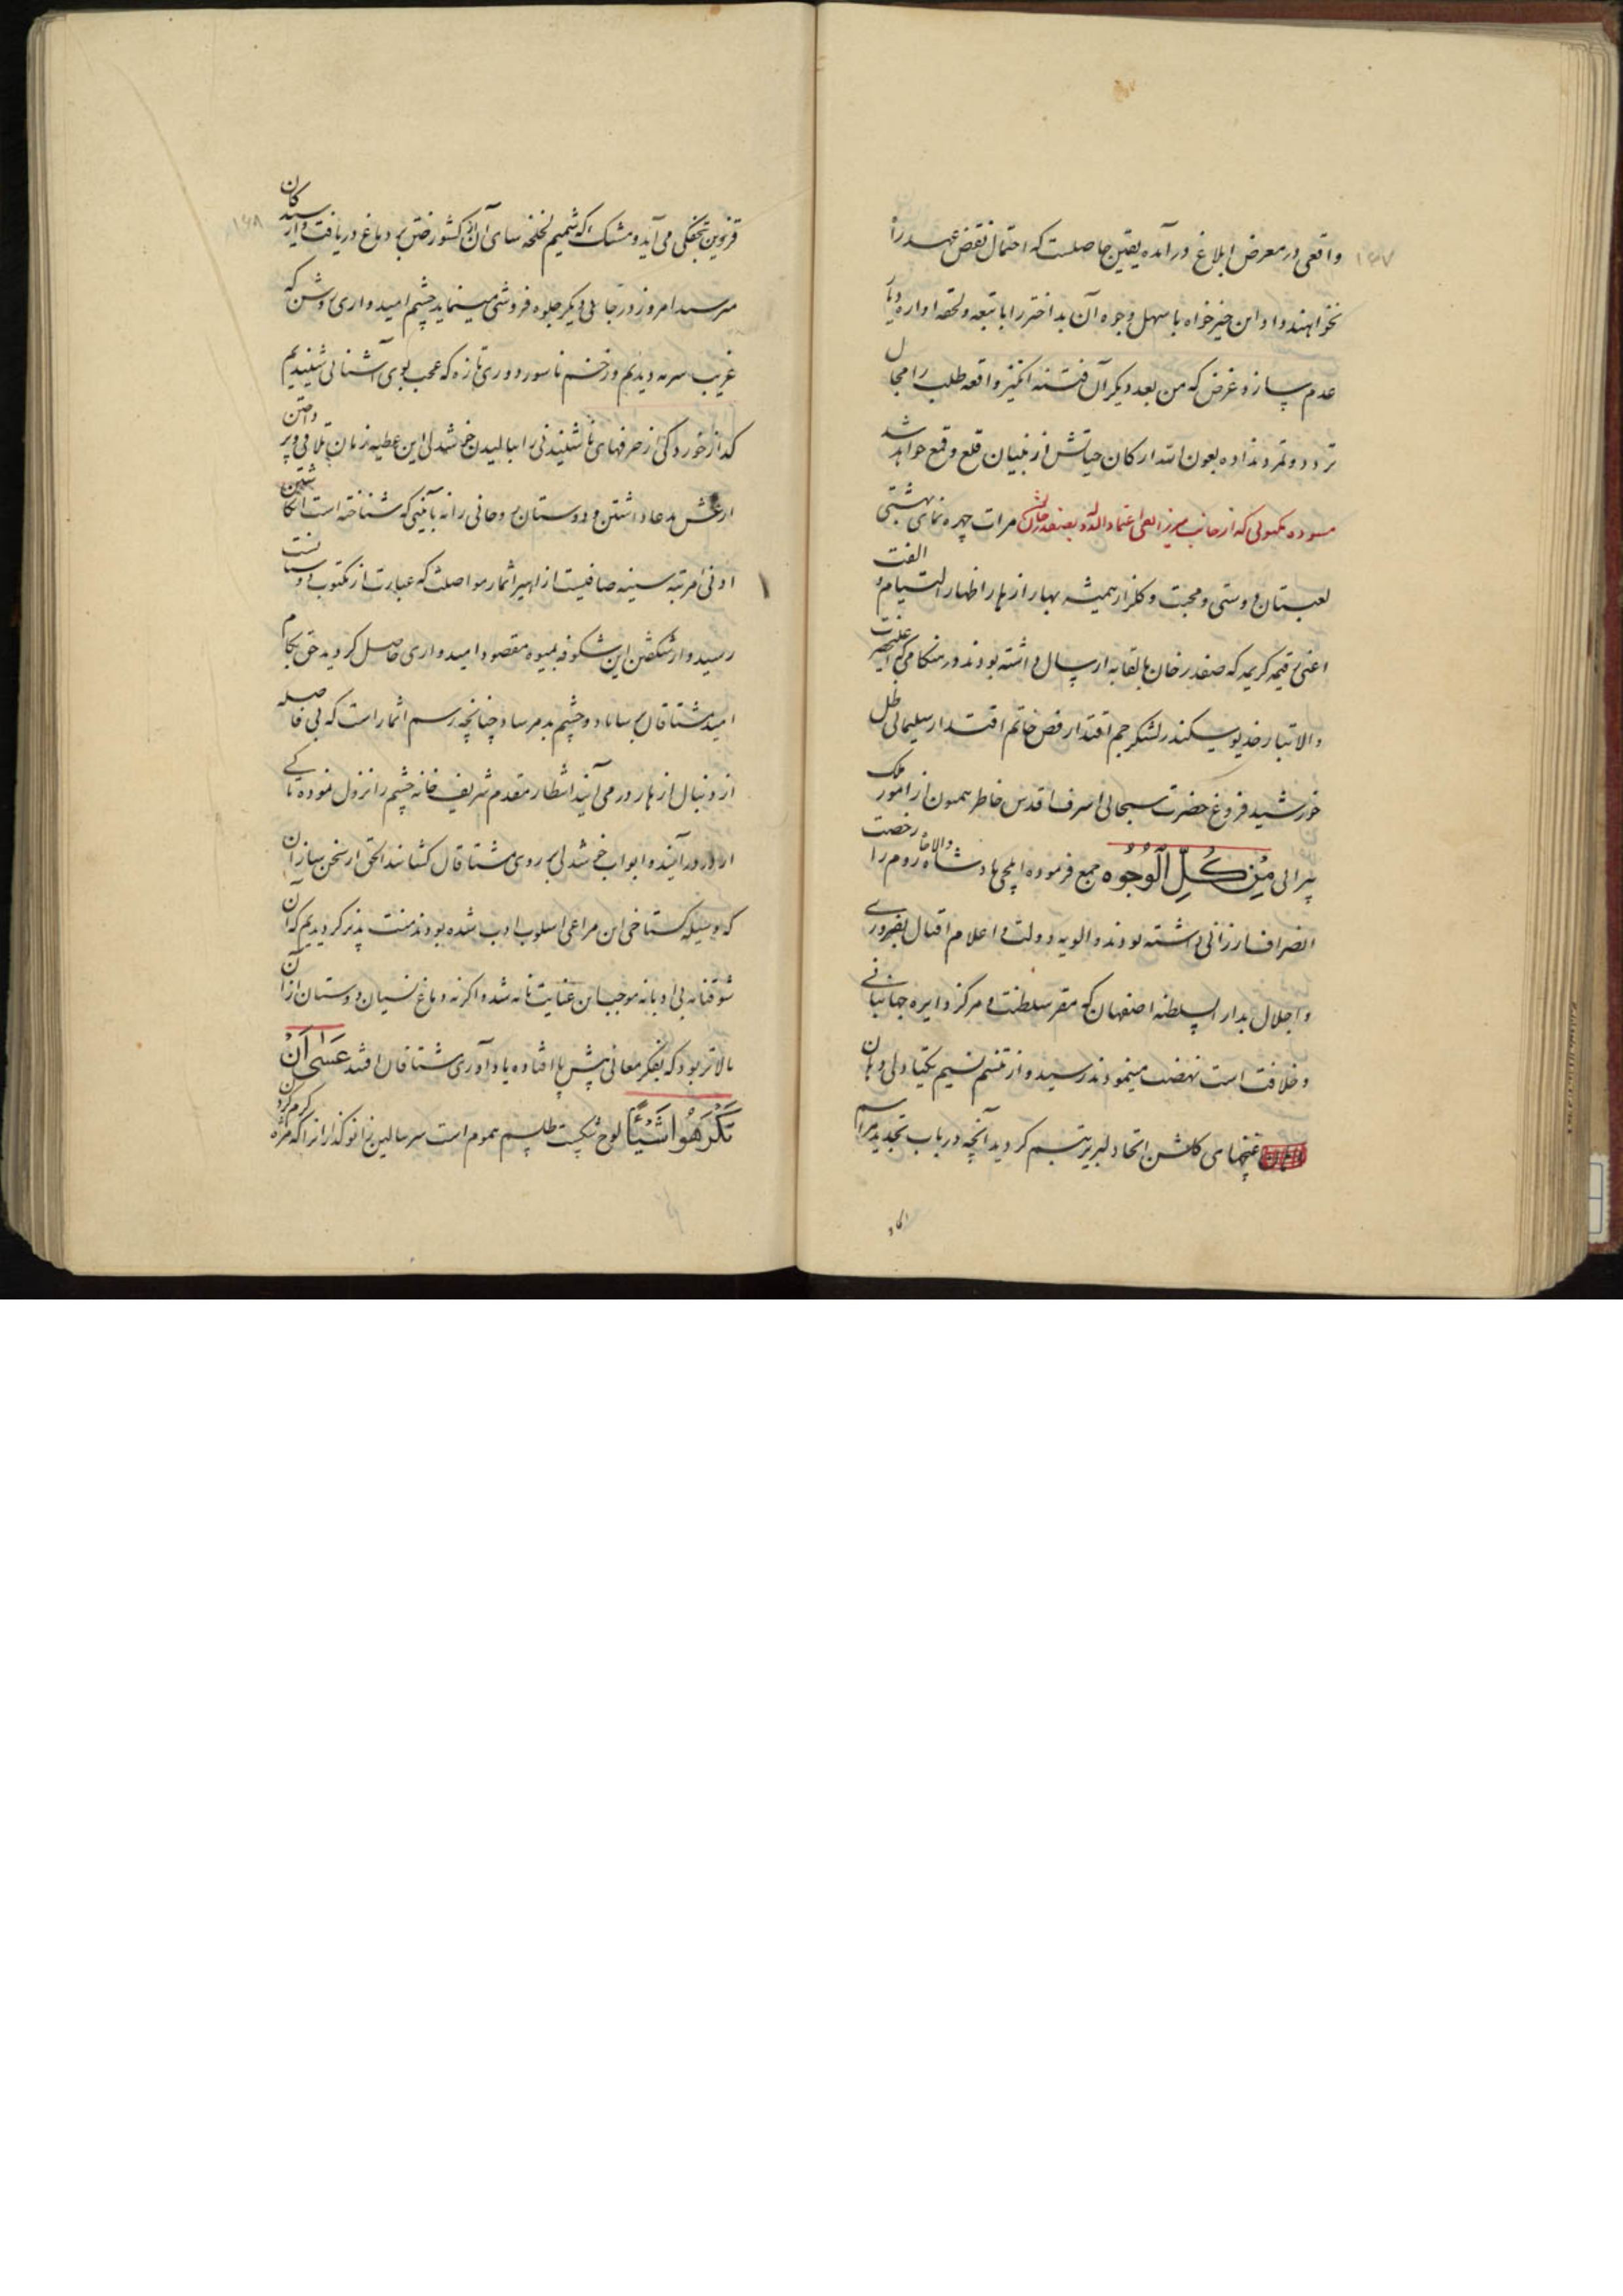 ۱۶۷
واقعی در معرض ابلاغ در آمده یقین حاصلست که احتمال نقض عهد را
نخواهند داد و این خیرخواه باسهل وجوه آن بد اختر را با تبعه و لحقه اواره دیار
عدم سازد غرض که من بعد دیکر آن فتنه انکیز واقعه طلب را مجال
تردد و تمرد نداده بعون الله ارکان حیاتش از بنیان قلع و قمع خواهد شد
مسوده مکتوبی که از جانب میرزا اعتماد الدوله بصفدر خان مرات چهره نمای بهشتی
لعبستان دوستی و محبت و کلزار همیشه بهار ازهار اظهار التیام و الفت
اعنی رقیمه کریمه که صفدر خان بالقابه ارسال داشته بودند در هنکامی که اعلیحضرت
والاتبار خدیو سکندر لشکر جم اقتدار فص خاتم اقتدار سلیمانی ظل
خورشید فروغ حضرت سبحانی اشرف اقدس خاطر همیون از امور ملک
پیرائی مِنْ كُلِّ الْوُجُوه جمع فرموده ایلچی پادشاه والاجاه روم را رخصت
انصراف ارزانی داشته بودند و الویه دولت و اعلام اقبال بفیروزی
و اجلال بدار السلطنه اصفهان که مقر سلطنت و مرکز دایره جهانبانی
و خلافت است نهضت مینمودند رسید و از تنسم نسیم یکتادلی دهان
غنچهای کلشن اتحاد لبریز تبسم کردید آنچه در باب تجدید مراسم
۱۶۸
قزوین بخنکی می آید و مشک که شمیم لخلخه سای آن از کشور ختن بر دماغ دریافت
میرسید امروز در جای دیکر جلوه فروشی مینماید چشم امیدواری روشن که
غریب سرمه دیدیم و زخم ناسور دوری تازه که عجب بوی آشنائی شنیدیم
که از خورد کی زحرفهای ناشنیدنی را ببالیدن خوشدلی این عطیه زمان تلافی
ارغش مدعا داشتن و دوستان روحانی را نه باینی که شناخته است
ادنی مرتبه سینه صافیست از اثمار مواصلت که عبارت از مکتوب دوستانست
رسید و از شکفتن این شکوفه بمیوه مقصود امیدواری حاصل کردید حق بکام
امید مشتاقان برساناد و چشم بد مرساد چنانچه رسم اثمار است که بی فاصله
از دنبال ازهار در می آیند انتظار مقدم شریف خانه چشم را نزول نموده تا کی
از در درآیند و ابواب خوشدلی بر روی مشتاقان کشانند الحق از سخن سازان
که وسیله کستاخی این مراعی اسلوب ادب شده بودند منت پذیر کردیدیم که آن
شوقنامه بی ادبانه موجب این عنایت نامه شد و اکرنه دماغ نسیان دوستان از آن
بالاتر بود که بفکر معانی پیش پا افتاده یاد آوری مشتاقان افتد عَسَى اَنْ
تَكْرَهُوا شَيْئًا لوح شکست طلسم هموم است سر ببالین زانو کذاران را که مژه